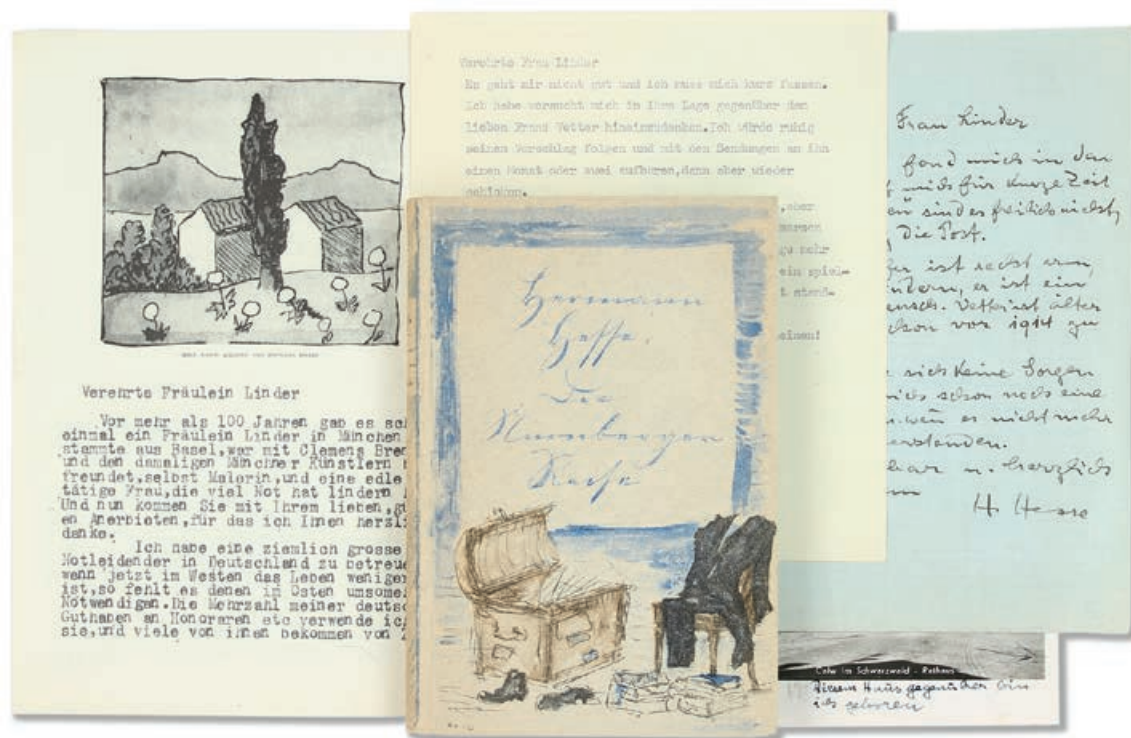 Verehrte Fräulein Linder
Vor mehr als 100 Jahren gab es sc
einmal ein Fräulein Linder in München
stammte aus Basel, war mit Clemens Bre
und den damaligen Münchner Künstlern
freundet, selbst Malerin, und eine edle
tätige Frau, die viel Not hat lindern
Und nun kommen Sie mit Ihrem lieben, g
en Anerbieten, für das ich Ihnen herzli
danke.
Ich habe eine ziemlich grosse
Notleidender in Deutschland zu betreue
wenn jetzt im Westen das Leben weniger
ist, so fehlt es denen im Osten umsome
Notwendigen. Die Mehrzahl meiner deutsc
Guthaben an Honoraren etc verwende ic
sie, und viele von ihnen bekommen von
Verehrte Frau Linder
Es geht mir nicht gut und ich muss mich kurz fassen.
Ich habe versucht mich in Ihre Lage gegenüber dem
lieben Franz Vetter hineinzudenken. Ich würde ruhig
seinen Vorschlag folgen und mit den Sendungen an ihn
einen Monat oder zwei aufhören, dann aber wieder
schicken.
, aber
mehr
ein spiel-
Hermann
Hesse,
Die
Nürnberger
Reise
Frau Linder
fand mich in den
mich für kurze Zeit
sind es freilich nicht,
die Post.
ist recht arm,
er ist ein
ensch. Vetter ist älter
schon vor
sich keine Sorgen
schon noch eine
wen es nicht mehr
erstanden.
u. herzlich
H Hesse
Calw im Schwarzwald - Rathaus
diesem Haus gegenüber bin
ich geboren